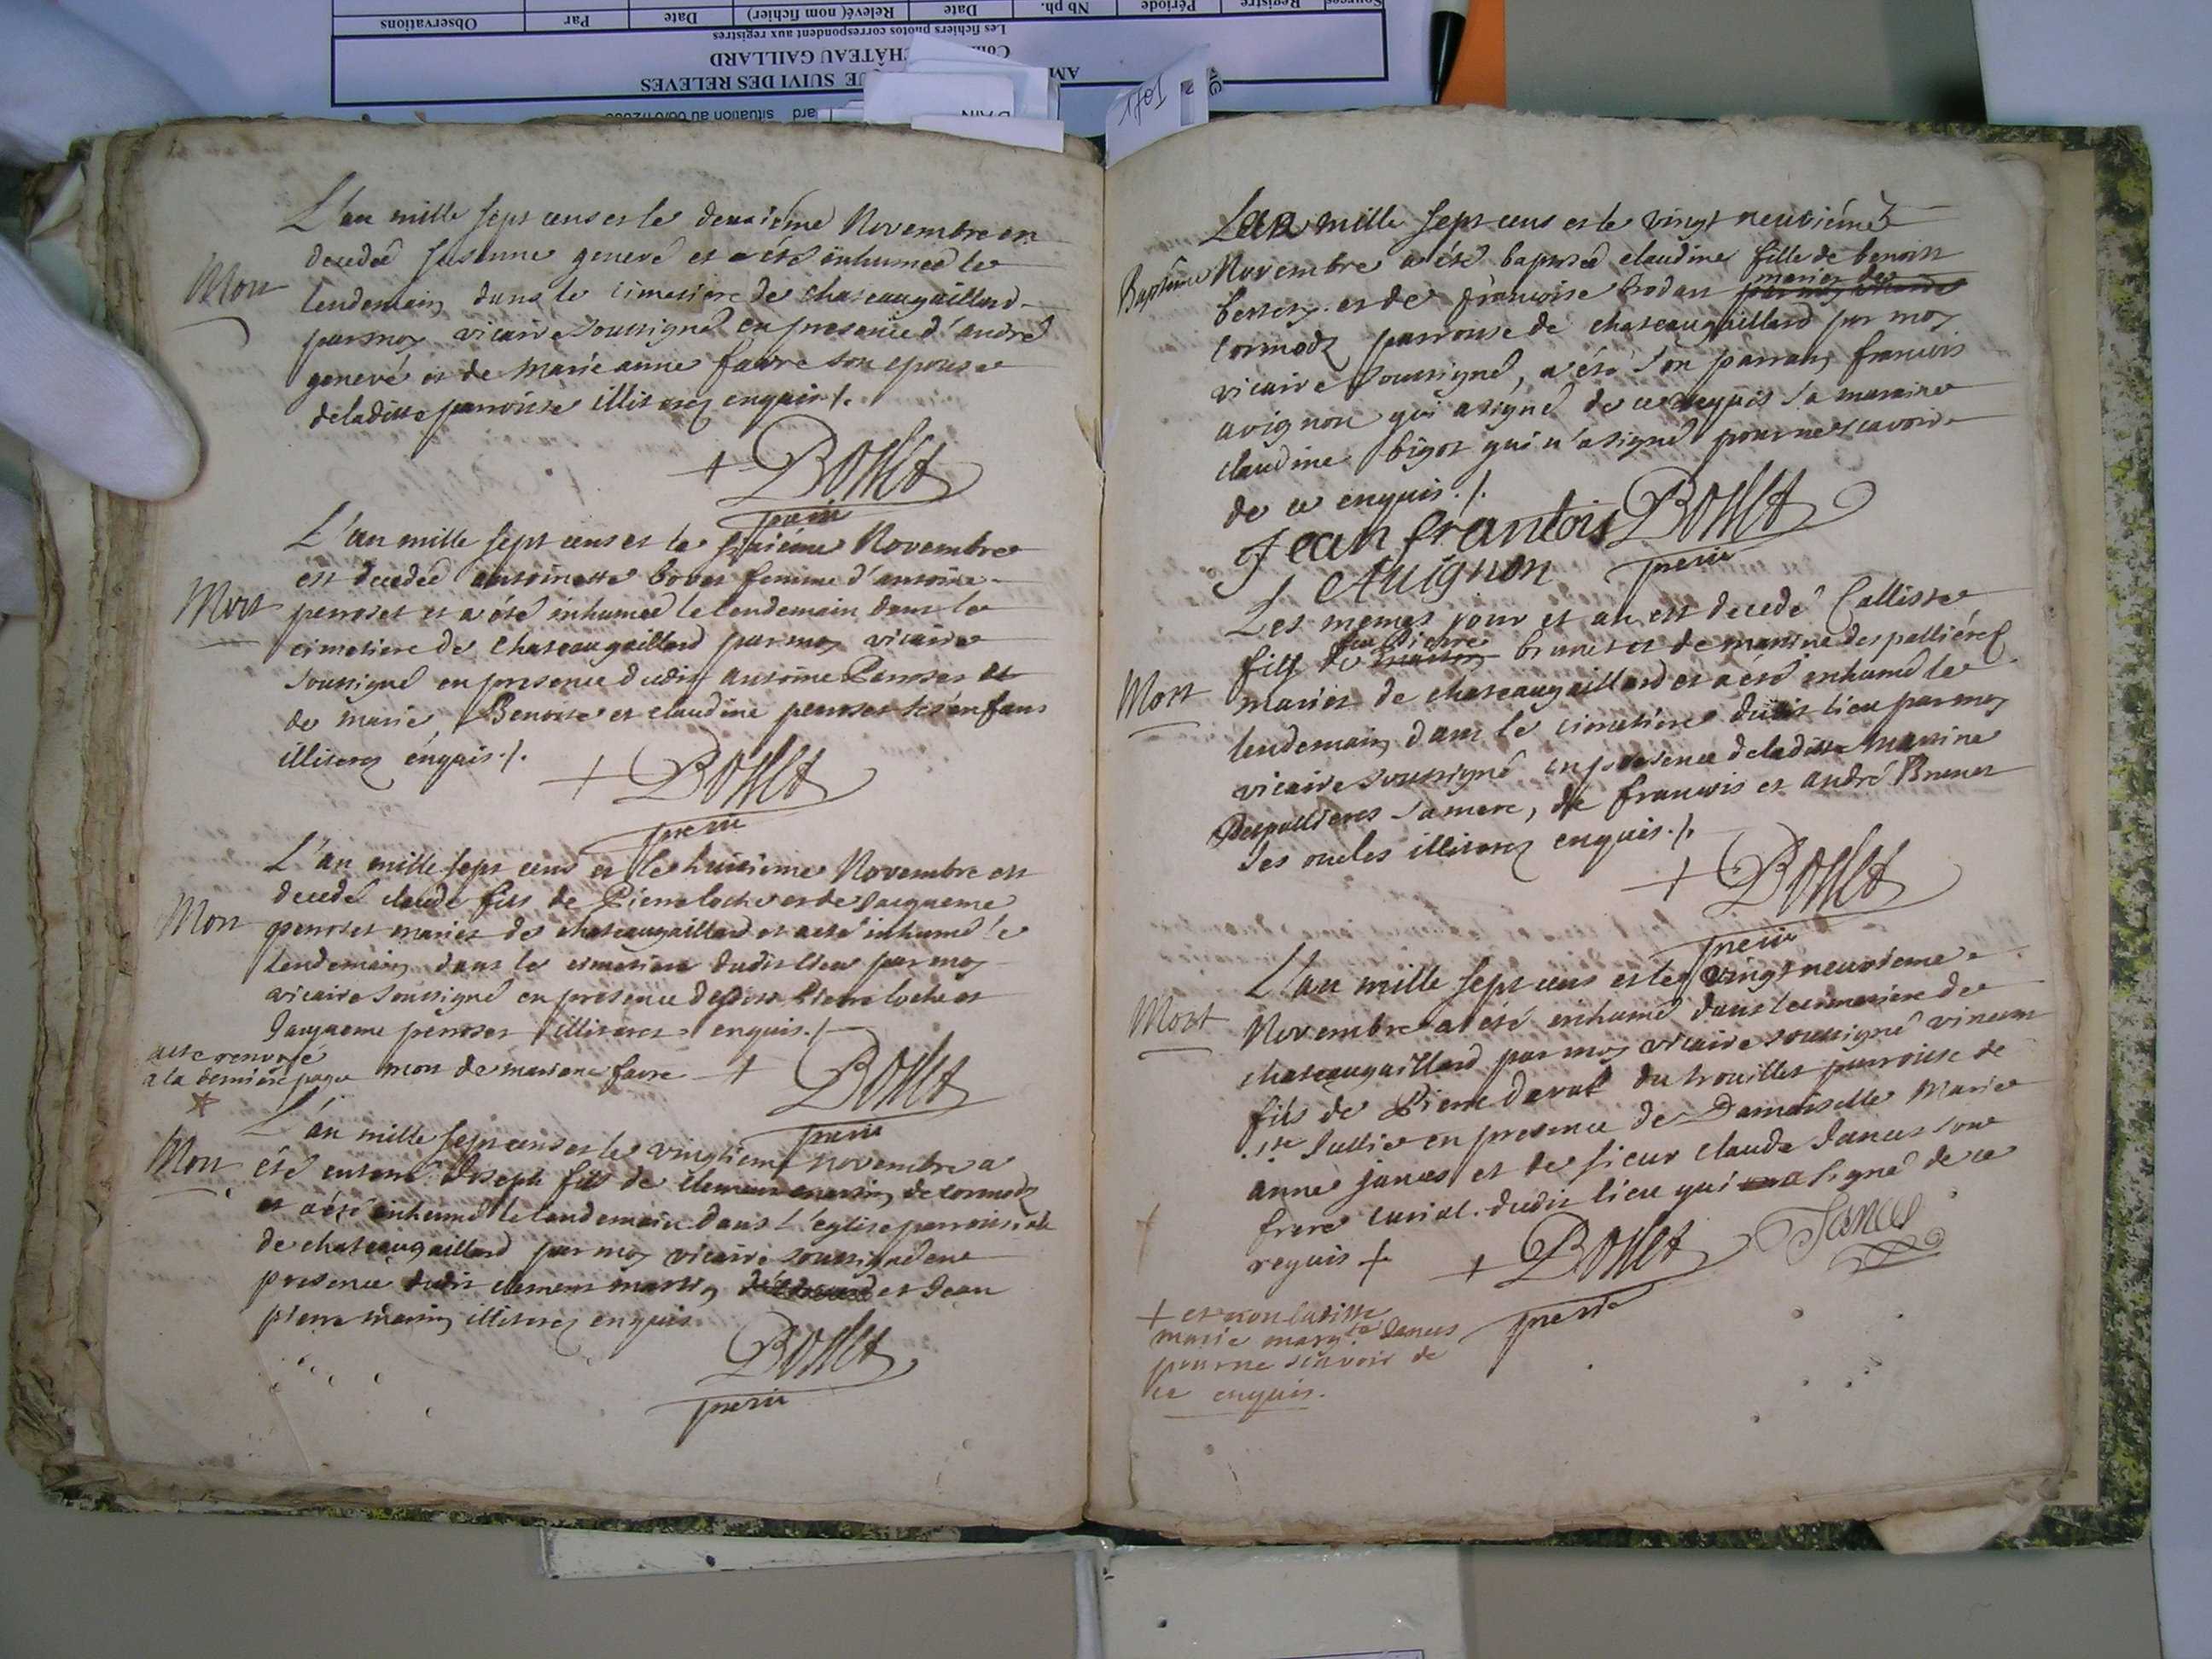 Sources Registre Période Nb ph. Date Relevé( nom fichier) Date Par Observations
Les fichiers photos correspondent aux registres
CHÂTEAU GAILLARD
SUIVI DES RELEVES
1701
L'an mille sept cens et le deuxième Novembre est
decedée susanne genevé et a été inhumeé le
lendemain dans le cimetiere de chateaugaillard
par moy vicaire soussigné en presence d'andré
genevé et de marie anne favre son epouse
de laditte parroisse illiterez enquis ./.
Mort
+ Bollet
L'an mille sept cens et le sixiéme Novembre
est decedeé antoinette bovet femme d'antoine
perroset et a été inhumeé le lendemain dans le
cimetiere de chateaugaillard par moy vicaire
soussigné en presence dudit antoine Perroset et
de marie, Benoite et claudine perroset ses enfans
illiterez enquis ./.
Mort
+ Bollet
L'an mille sept cens et le huitieme Novembre est
decedé claude fils de Pierre loche et de Jaqueme
perroset mariez de chateaugaillard et a eté inhumé le
lendemain dans le cimetiere dudit lieu par moy
vicaire soussigné en presence desdits Pierre loche et
Jaqueme perroset illiterez enquis ./.
Mort
acte renvoyé
a la derniere page mort de mariane favre + Bollet
L'an mille sept cens et le vingtieme novembre a
été enterré Joseph fils de clement martin de cormoz
et a été inhumé le lendemain dans l'eglise parroissiale
de chateaugaillard par moy vicaire soussigné en
presence dudit clement martin et Jean
pierre martin illiterez enquis
Mort
Bollet
L'an mille sept cens et le vingt neuviéme
Baptême Novembre a été baptisée claudine fille de benoist
berset et de françoise bodan mariez de
cormoz parroisse de chateaugaillard par moy
vicaire soussigné, a été son parrain francois
avignon qui a signé de ce requis sa maraine
claudine bigot qui n'a signé pour ne scavoir
de ce enquis ./.
Jean frantois Bollet
Auignon
Les memes jour et an est decedé Calliste
fils de feu Pierre brunet et de martine despallieres
mariez de chateaugaillard et a été inhumé le
lendemain dans le cimetiere dudit lieu par moy
vicaire soussigné en presence de laditte martine
Despallieres sa mere, de francois et andré Brunet
ses oncles illiterez enquis ./.
Mort
+ Bollet
L'an mille sept cens et le vingt neuvieme
Novembre a été inhumé dans le cimetiere de
chateaugaillard par moy vicaire soussigné vincent
fils de Pierre daval du trouillet parroisse de
st Jullie en presence de Damoiselle Marie
anne janus et de sieur claude Janus son
frere curial dudit lieu qui a signé de ce
requis +
Mort
+ Bollet Janus
+ et non laditte
marie marg.te Janus
pour ne scavoir de
ce enquis.